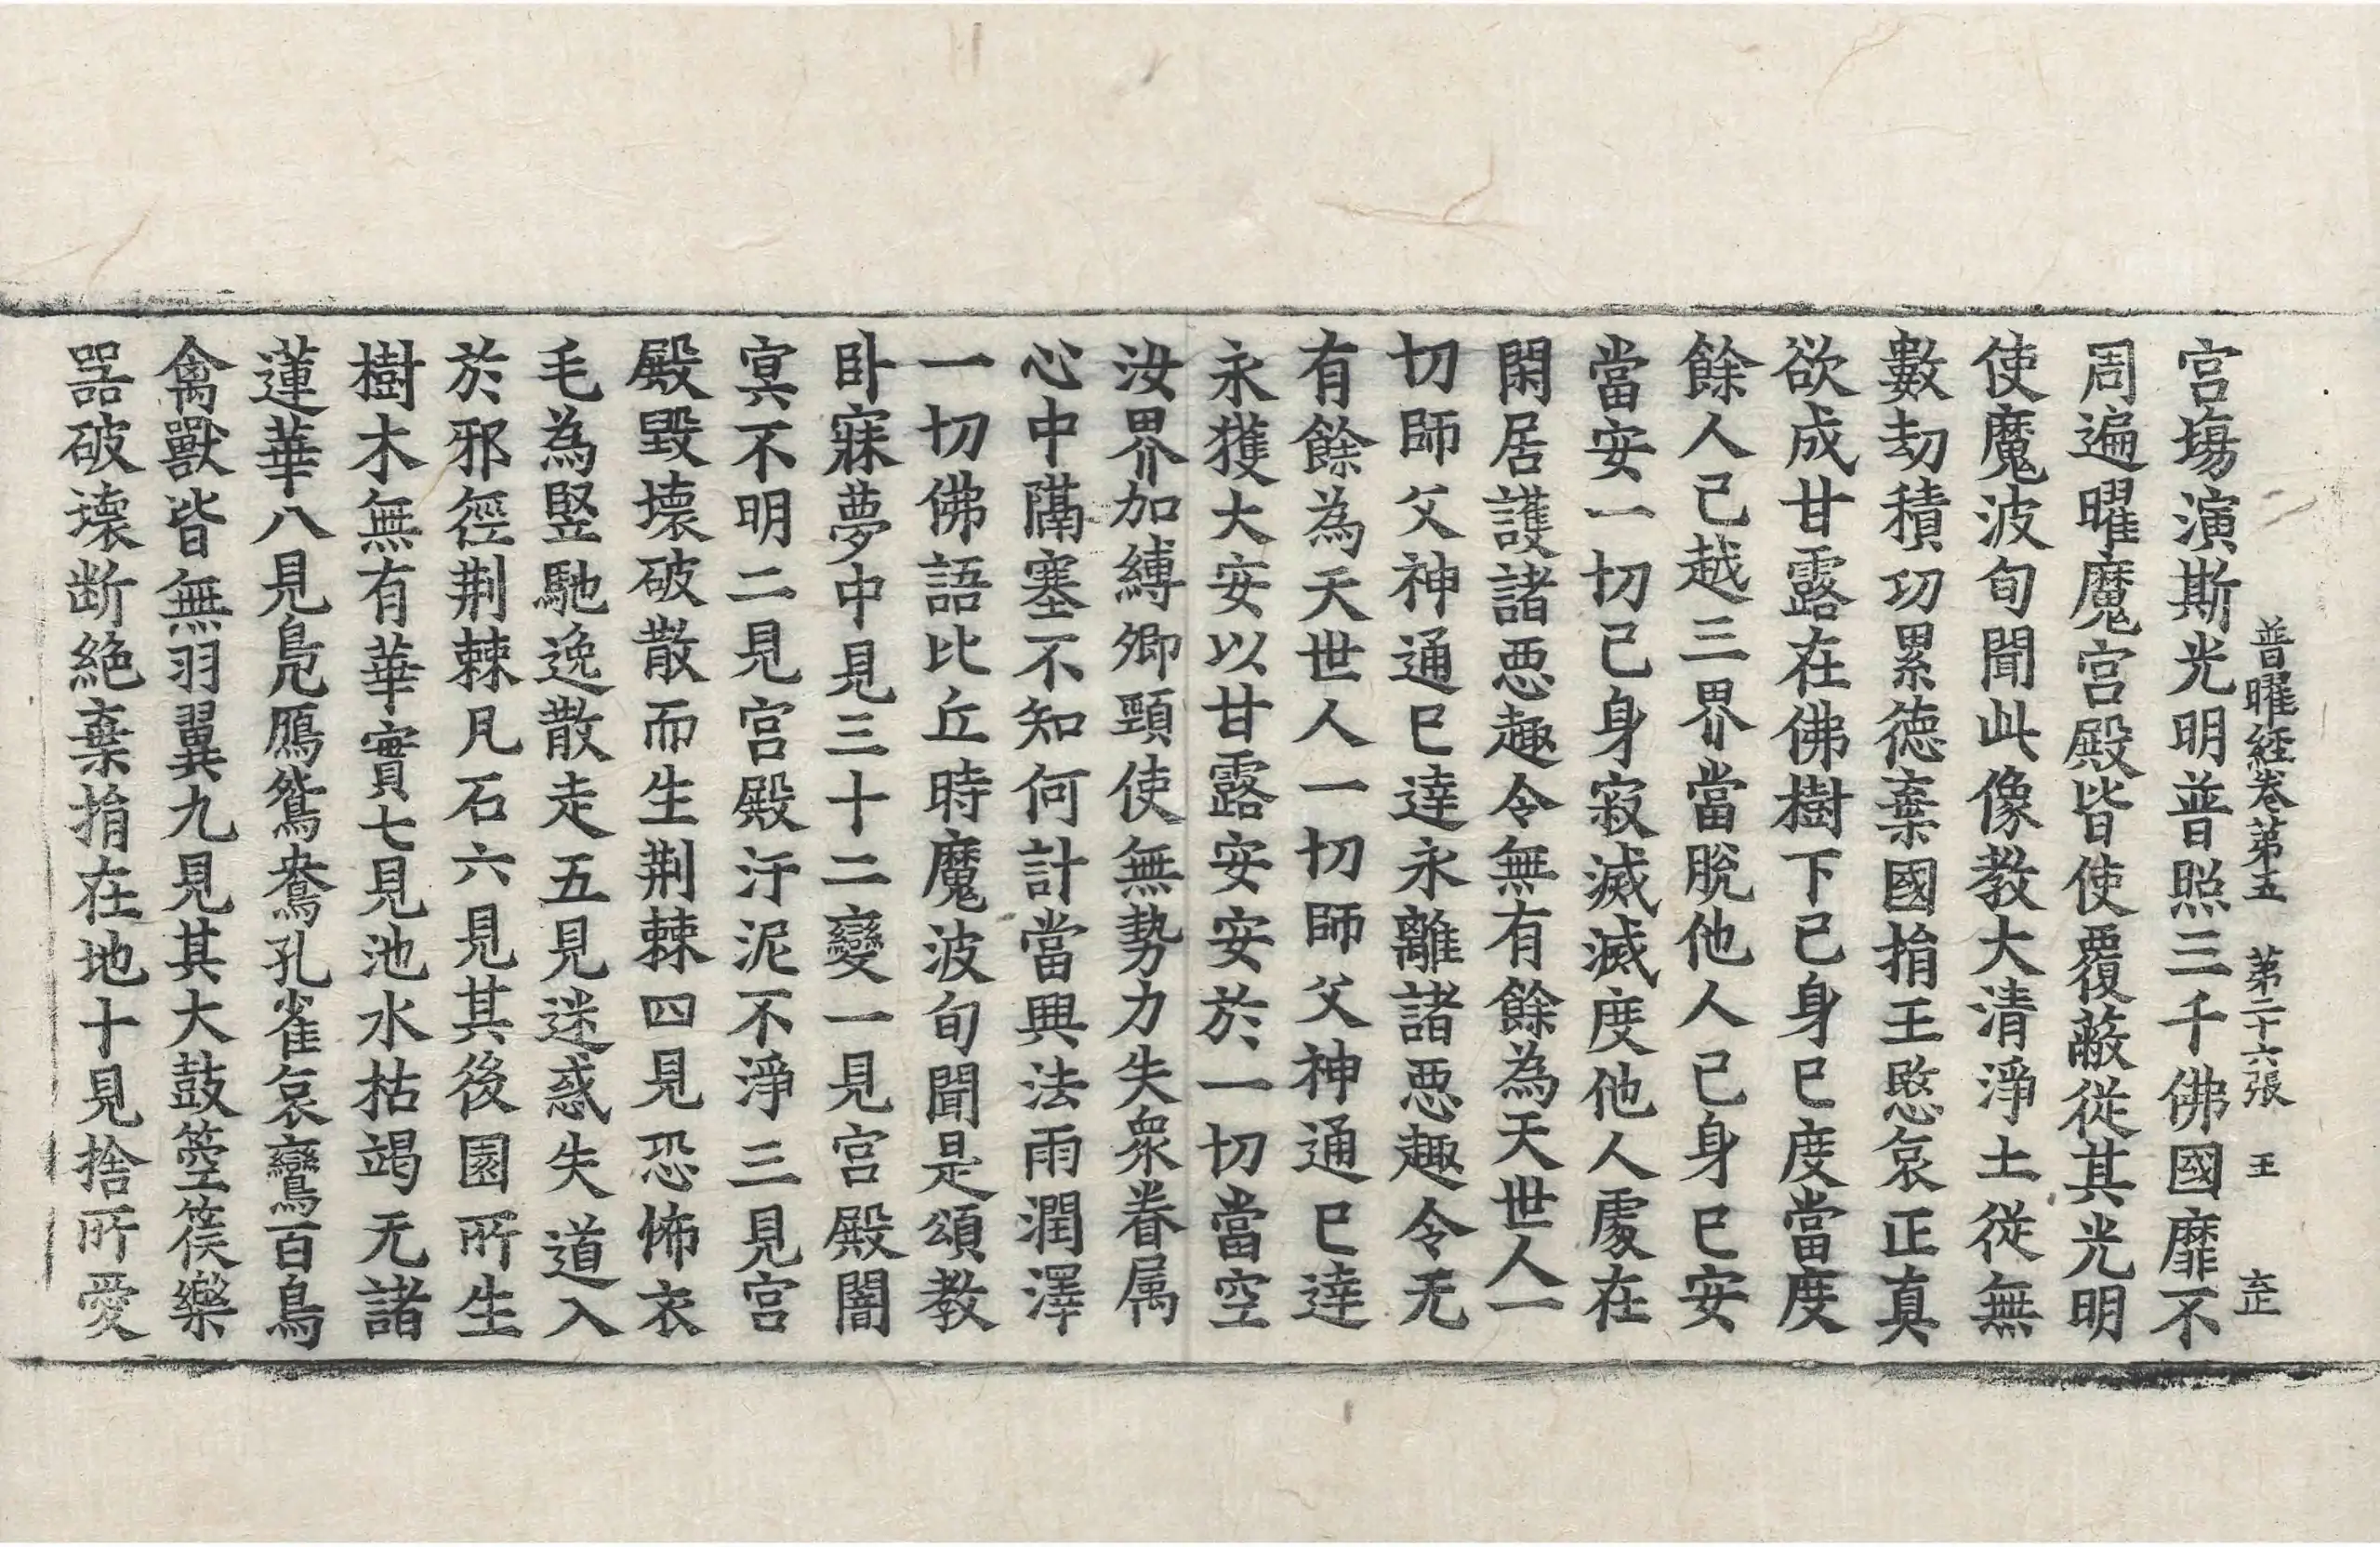 普曜経卷第五 第二十六張 王
宮塲演斯光明普照三千佛國靡不
周遍曜魔宮殿皆使覆蔽從其光明
使魔波旬聞此像教大清淨土從無
數劫積功累德棄國捐王愍哀正真
欲成甘露在佛樹下己身已度當度
餘人己越三界當脫他人己身已安
當安一切己身寂滅滅度他人處在
閑居護諸惡趣令無有餘為天世人一
切師父神通已達永離諸惡趣令无
有餘為天世人一切師父神通已達
永獲大安以甘露安安於一切當空
汝界加縛卿頸使無勢力失衆眷属
心中隔塞不知何計當興法雨潤澤
一切佛語比丘時魔波旬聞是頌教
卧寐夢中見三十二變一見宮殿闇
冥不明二見宮殿汙泥不淨三見宮
殿毀壞破散而生荆棘四見恐怖衣
毛為竪馳逸散走五見迷惑失道入
於邪徑荆棘凡石六見其後園所生
樹木無有華實七見池水枯竭无諸
蓮華八見鳧鴈鴛鴦孔雀哀鸞百鳥
禽獸皆無羽翼九見其大鼓箜篌樂
器破壞断絶棄捐在地十見捨所愛